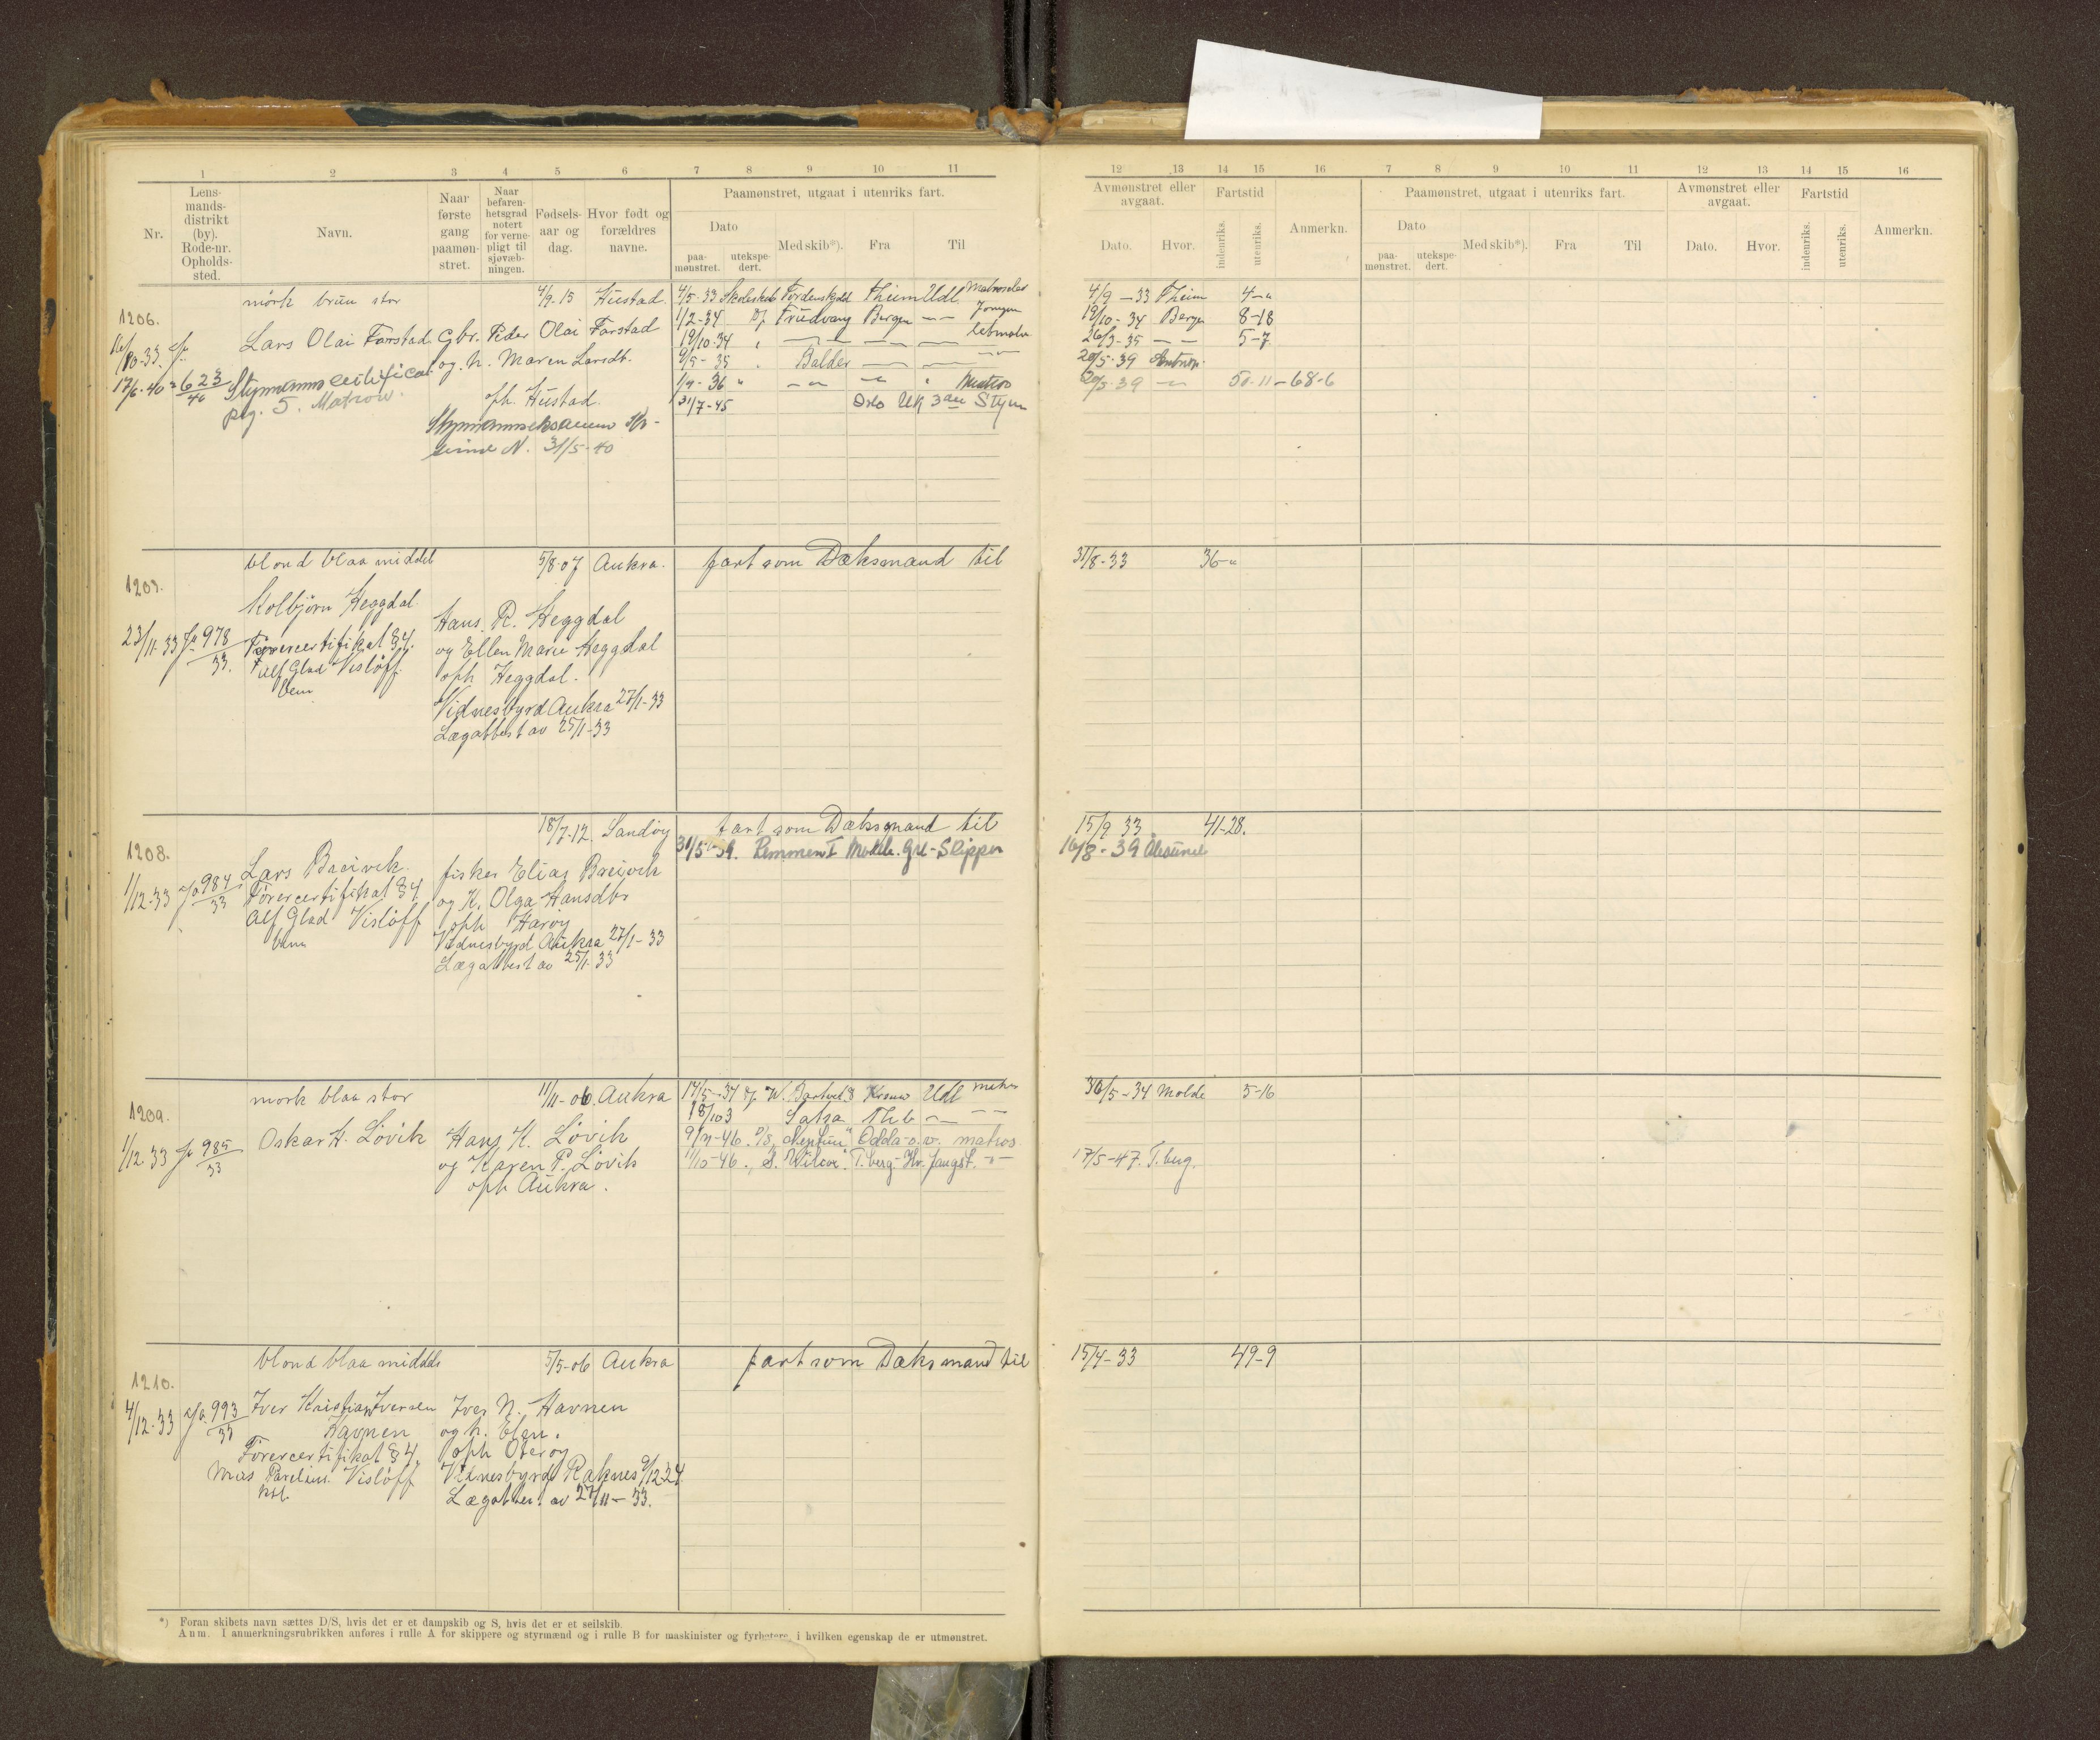 1 2 3 4 5 6 7 8 9 10 11
Nr.
Lens-
mands-
distrikt
(by).
Rode-nr.
Opholds-
sted.
Navn.
Naar
første
gang
paamøn-
stret.
Naar
befaren-
hetsgrad
notert
for verne-
pligt til
sjøvæb-
ningen.
Fødsels-
aar og
dag.
Hvor født og
forældres
navne.
Paamønstret, utgaat i utenriks fart.
Dato
paa-
mønstret.
utekspe-
dert.
Med skib*).
Fra
Til
12 13 14 15 16 7 8 9 10 11 12 13 14 15 16
Avmønstret eller
avgaat.
Dato. Hvor.
Fartstid
indenriks. utenriks.
Anmerkn.
Paamønstret, utgaat i utenriks fart.
Dato
paa-
mønstret.
utekspe-
dert.
Med skib*). Fra Til
Avmønstret eller
avgaat.
Dato. Hvor.
Fartstid
indenriks. utenriks.
Anmerkn.
1206.
mörk brun stor 4/9-15 Hustad
Lars Olai Farstad Gbr. Peder Olai Farstad
og h. Maren Larsdt.
oph. Hustad.
16/10-33
17/6-40 623/40 Styrmannscertificat
prg. 5. Matrow.
Styrmannseksamen Kr-
sund N. 31/5-40
4/5-33 Skoleskib Tordenskjold Thjem Udl
1/2-34 Fruedvang Bergen — Jungm
19/10-34 — — — letmatr
9/5-35 Balder — — —
1/4-36 Matros
31/7-45 Oslo UK 3die Styrm
4/9-33 Thjem 4-"
19/10-34 Bergen 8-18
26/3-35 — 5-7
20/5-39
20/5-39 50-11-68-6
1207.
blond blaa middel 5/8-07 Aukra. fart som Dæksmand til 31/8-33 36-"
Kolbjörn Heggdal
Hans R. Heggdal
23/11-33 Ja 978/33 Förercertifikat §4. og Ellen Marie Heggdal
Alf Glad Vislöff. oph Heggdal.
Vidnesbyrd Aukra 27/1-33
Lægattest av 25/1-33
1208.
18/7-12. Sandöy fart som Dæksmand til 15/9 33 41-28.
31/5-39. Remmen I Molde. Grl-Slipper 16/8-39 Ålesund
Lars Breivik. fisker Elias Breivik
1/12-33 Ja 984/33 Förercertifikat §4 og K. Olga Hansdtr
Alf Glad Vislöff oph Haröy
Vidnesbyrd Aukra 27/1-33
Lægattest av 25/1-33
1209.
mork blaa stor 11/11-06. Aukra
Oskar H. Lövik Hans K. Lövik
1/12 33 Ja 985/33 og Karen P. Lövik
oph Aukra.
14/5-34 Krsund Udl matr
18/10 3 Salsa Thb — —
9/4-46. D/S "Neptun" Odda-o.v. matros.
11/10-46. S. "Wilcox". T.berg-Hv. fangst. -"-
30/5-34 Molde 5-16
17/5-47. T.berg.
1210.
blond blaa middels 5/5-06 Aukra fart som Dæksmand til 15/4-33 49-9
4/12-33 Ja 993/33 Iver Kristian Iversen Iver N. Havnen
Havnen og h. Elen.
Förercertifikat §4, oph Oteröy
Vislöff Vidnesbyrd Raknes 9/12-24
Lægattest av 27/11-33.
*) Foran skibets navn sættes D/S, hvis det er et dampskib og S, hvis det er et seilskib.
Anm. I anmerkningsrubrikken anføres i rulle A for skippere og styrmænd og i rulle B for maskinister og fyrbøtere, i hvilken egenskap de er utmønstret.